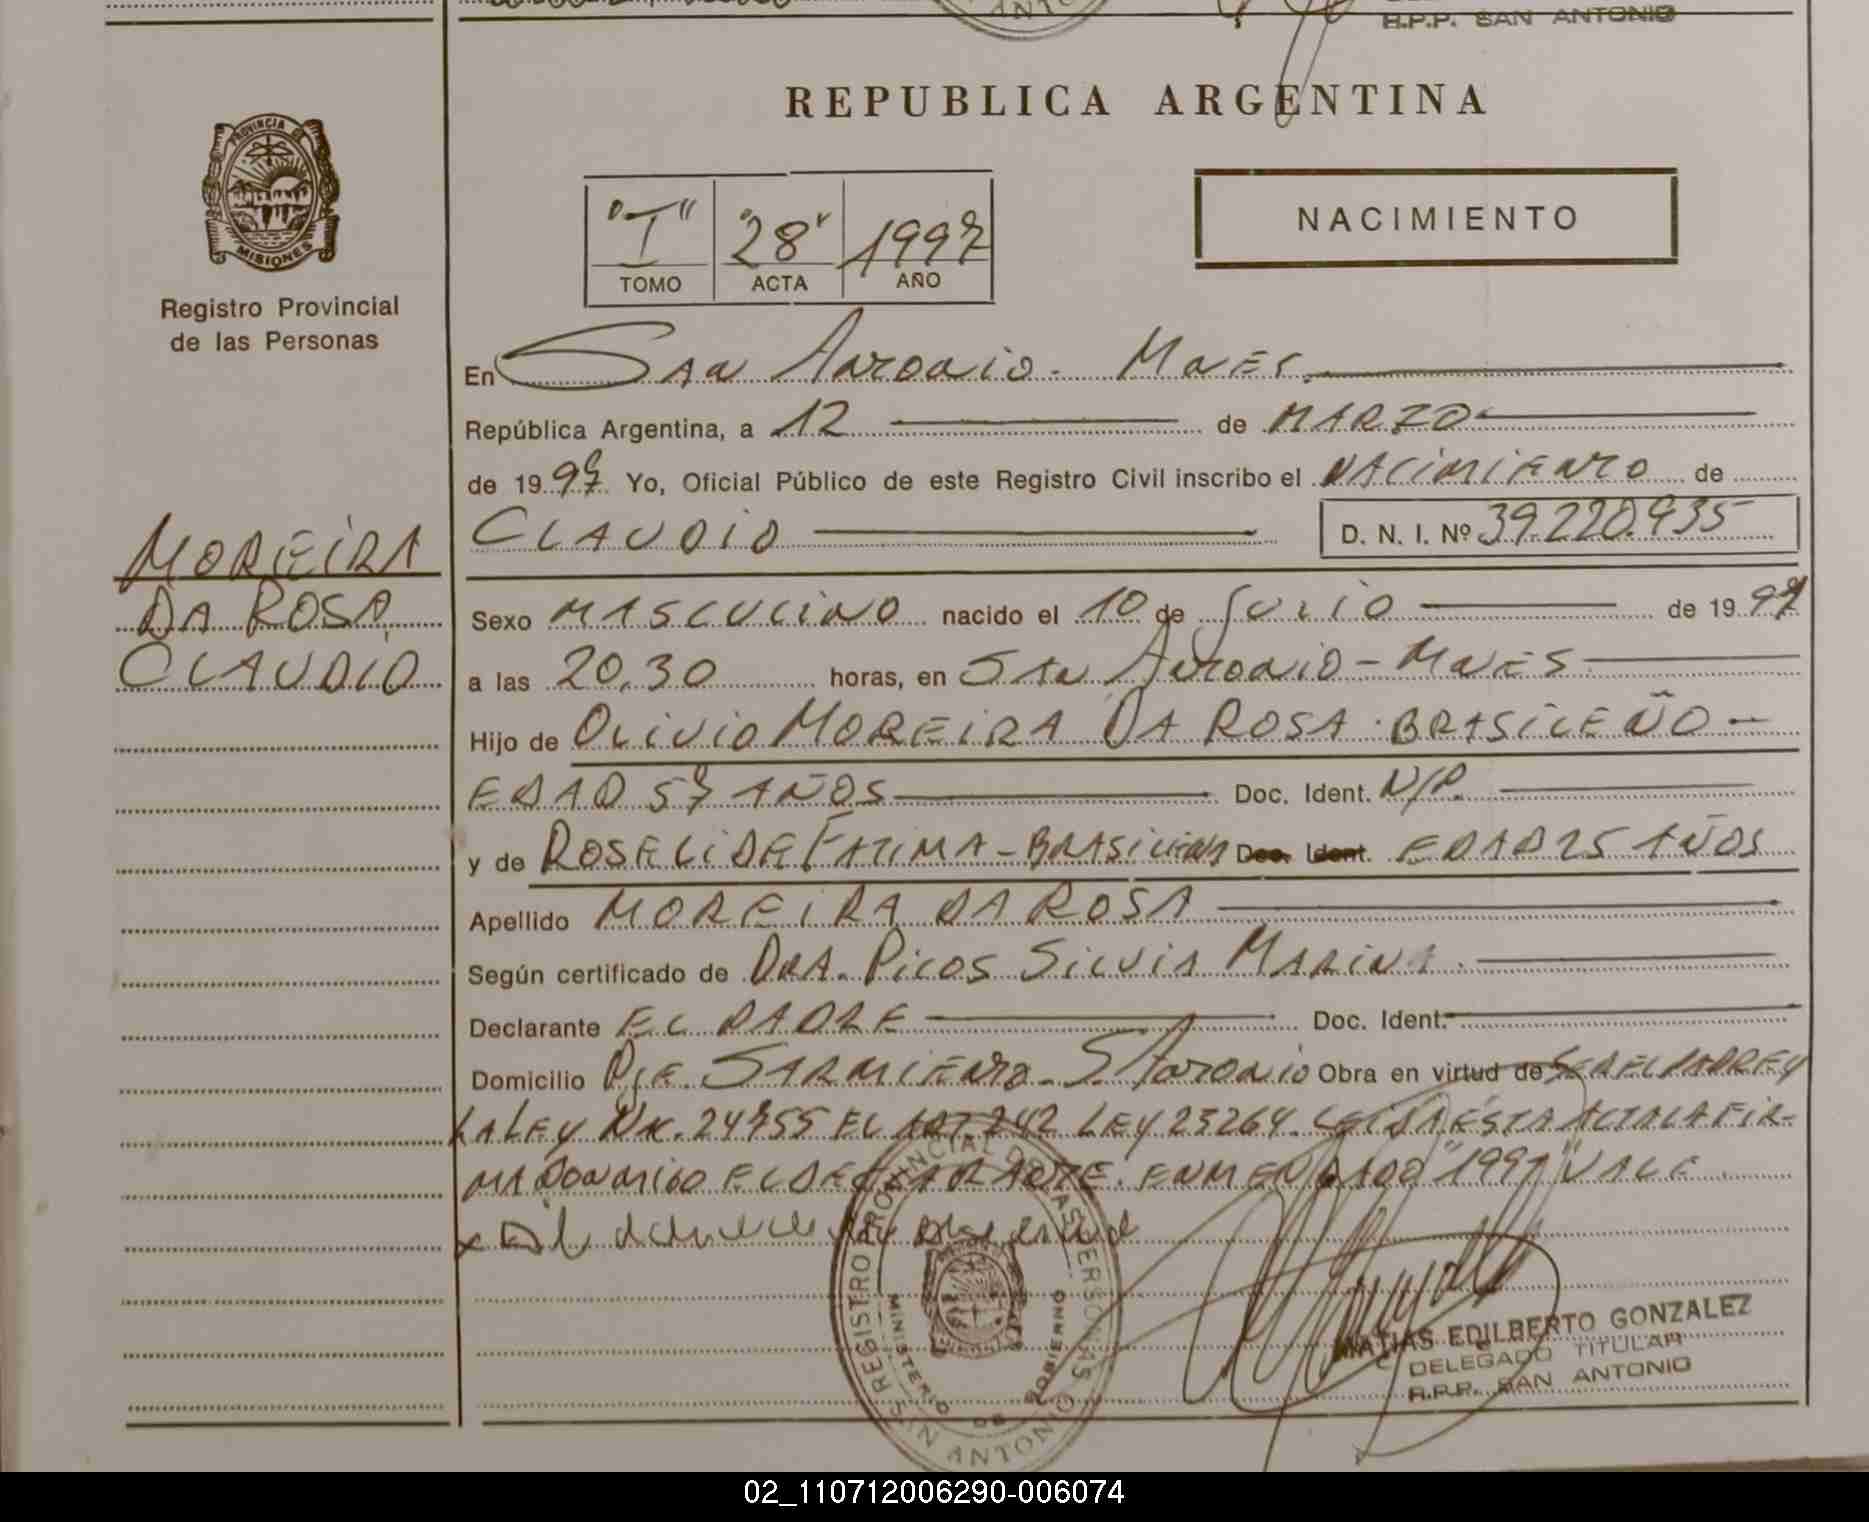 R.P.P. SAN ANTONIO
REPUBLICA ARGENTINA
PROVINCIA DE
MISIONES
Registro Provincial
de las Personas
"I" "28" 1997
TOMO ACTA AÑO
NACIMIENTO
En San Antonio - Mnes.
República Argentina, a 12 de MARZO
de 1997 Yo, Oficial Público de este Registro Civil inscribo el NACIMIENTO de
CLAUDIO D. N. I. Nº 39.220.935
MOREIRA
DA ROSA
CLAUDIO
Sexo MASCULINO nacido el 10 de JULIO de 19
a las 20,30 horas, en SAN ANTONIO - MNES
Hijo de OLIVIO MOREIRA DA ROSA - BRASILEÑO -
EDAD 57 AÑOS Doc. Ident. N/P.
y de ROSELI DE FATIMA - BRASILEÑA Doc. Ident. EDAD 25 AÑOS
Apellido MOREIRA DA ROSA
Según certificado de DRA. PICOS SILVIA MARINA.
Declarante EL PADRE Doc. Ident.
Domicilio Pje. SARMIENTO - S. ANTONIO Obra en virtud de SER EL PADRE Y
LA LEY Nº. 24755 EL ART 242 LEY 23264. LEIDA ESTA ACTA LA FIR-
MA CONMIGO EL DECLARANTE. ENMENDADO "1997" VALE
REGISTRO PROVINCIAL DE LAS PERSONAS
MINISTERIO DE GOBIERNO
SAN ANTONIO
MATIAS EDILBERTO GONZALEZ
DELEGADO TITULAR
R.P.P. SAN ANTONIO
02_110712006290-006074